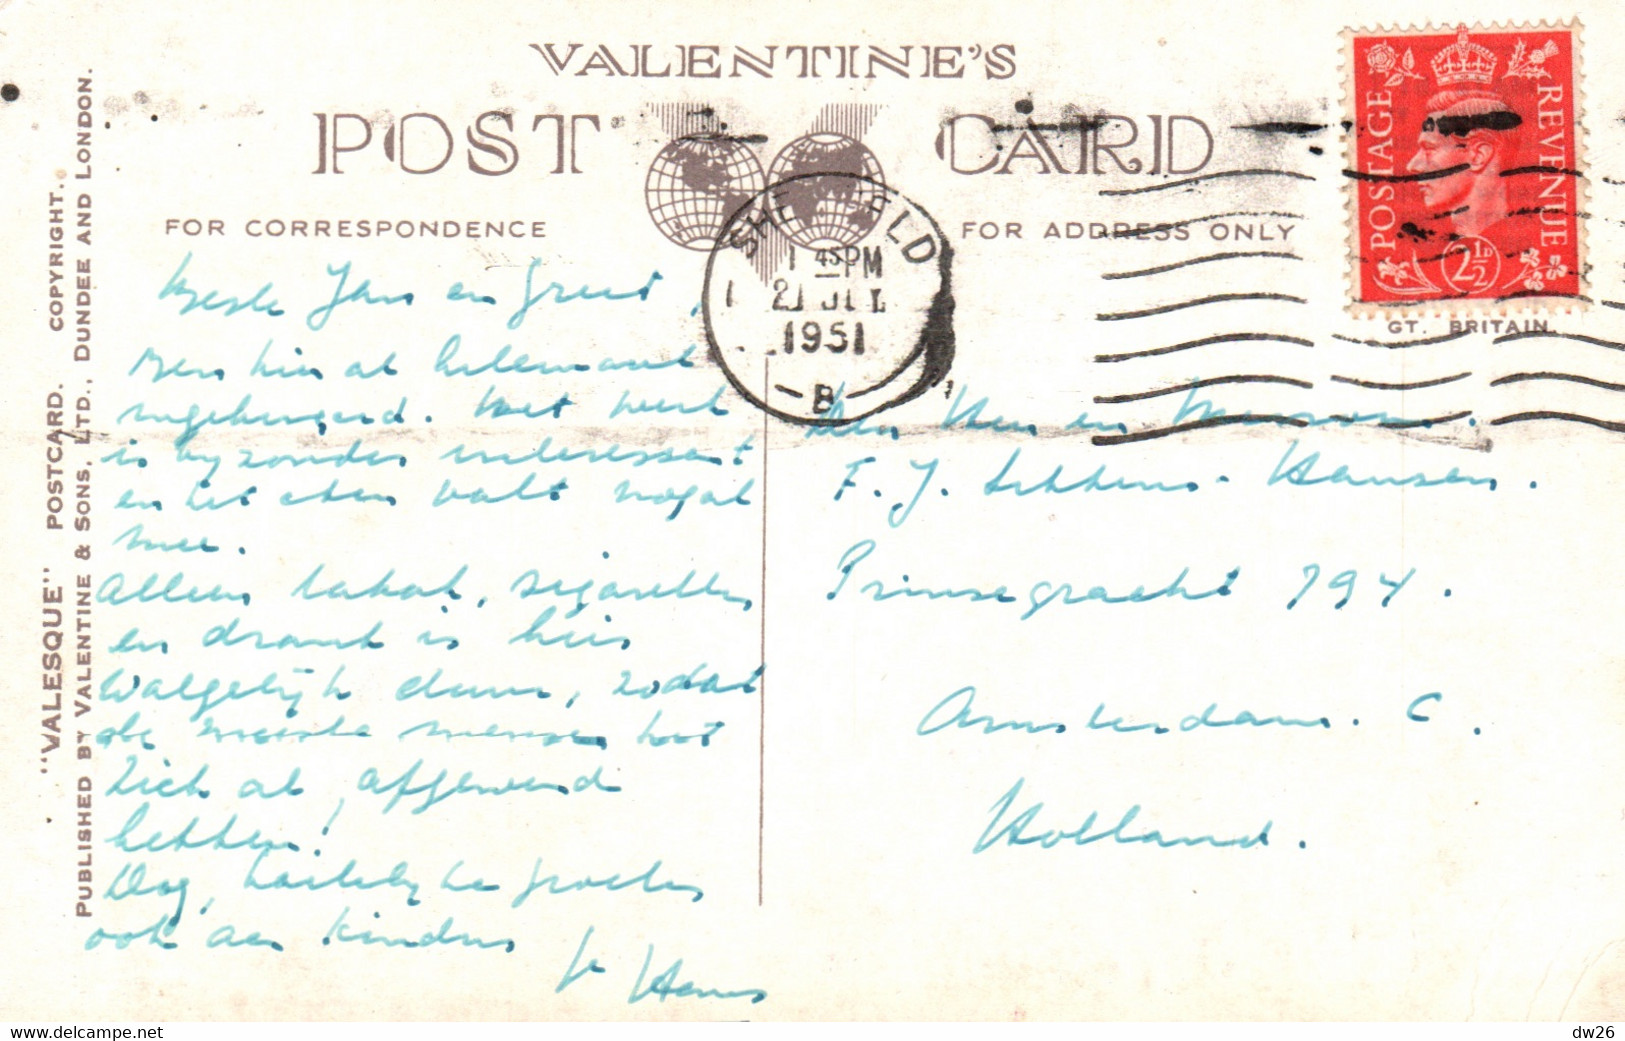 VALENTINE'S
POST CARD
FOR CORRESPONDENCE
FOR ADDRESS ONLY
"VALESQUE" POSTCARD. COPYRIGHT.
PUBLISHED BY VALENTINE & SONS, LTD., DUNDEE AND LONDON.
POSTAGE REVENUE
2½D
GT. BRITAIN.
SHEFFIELD
1 45 PM
2 JUL
1951
B
Beste Jan en Greet,
Ben hier al helemaal
ingeburgerd. Het werk
is byzonder interessant
en het eten valt nogal
mee.
Alleen tabak, sigaretten
en drank is hier
walgelijk duur, zodat
de meeste mensen het
zich al afgewend
hebben!
Dag, hartelijke groeten
ook aan kinders
Hans
Den Heer en Mevrouw
F. J. Hansen.
Prinsegracht 794.
Amsterdam. C.
Holland.
dw26